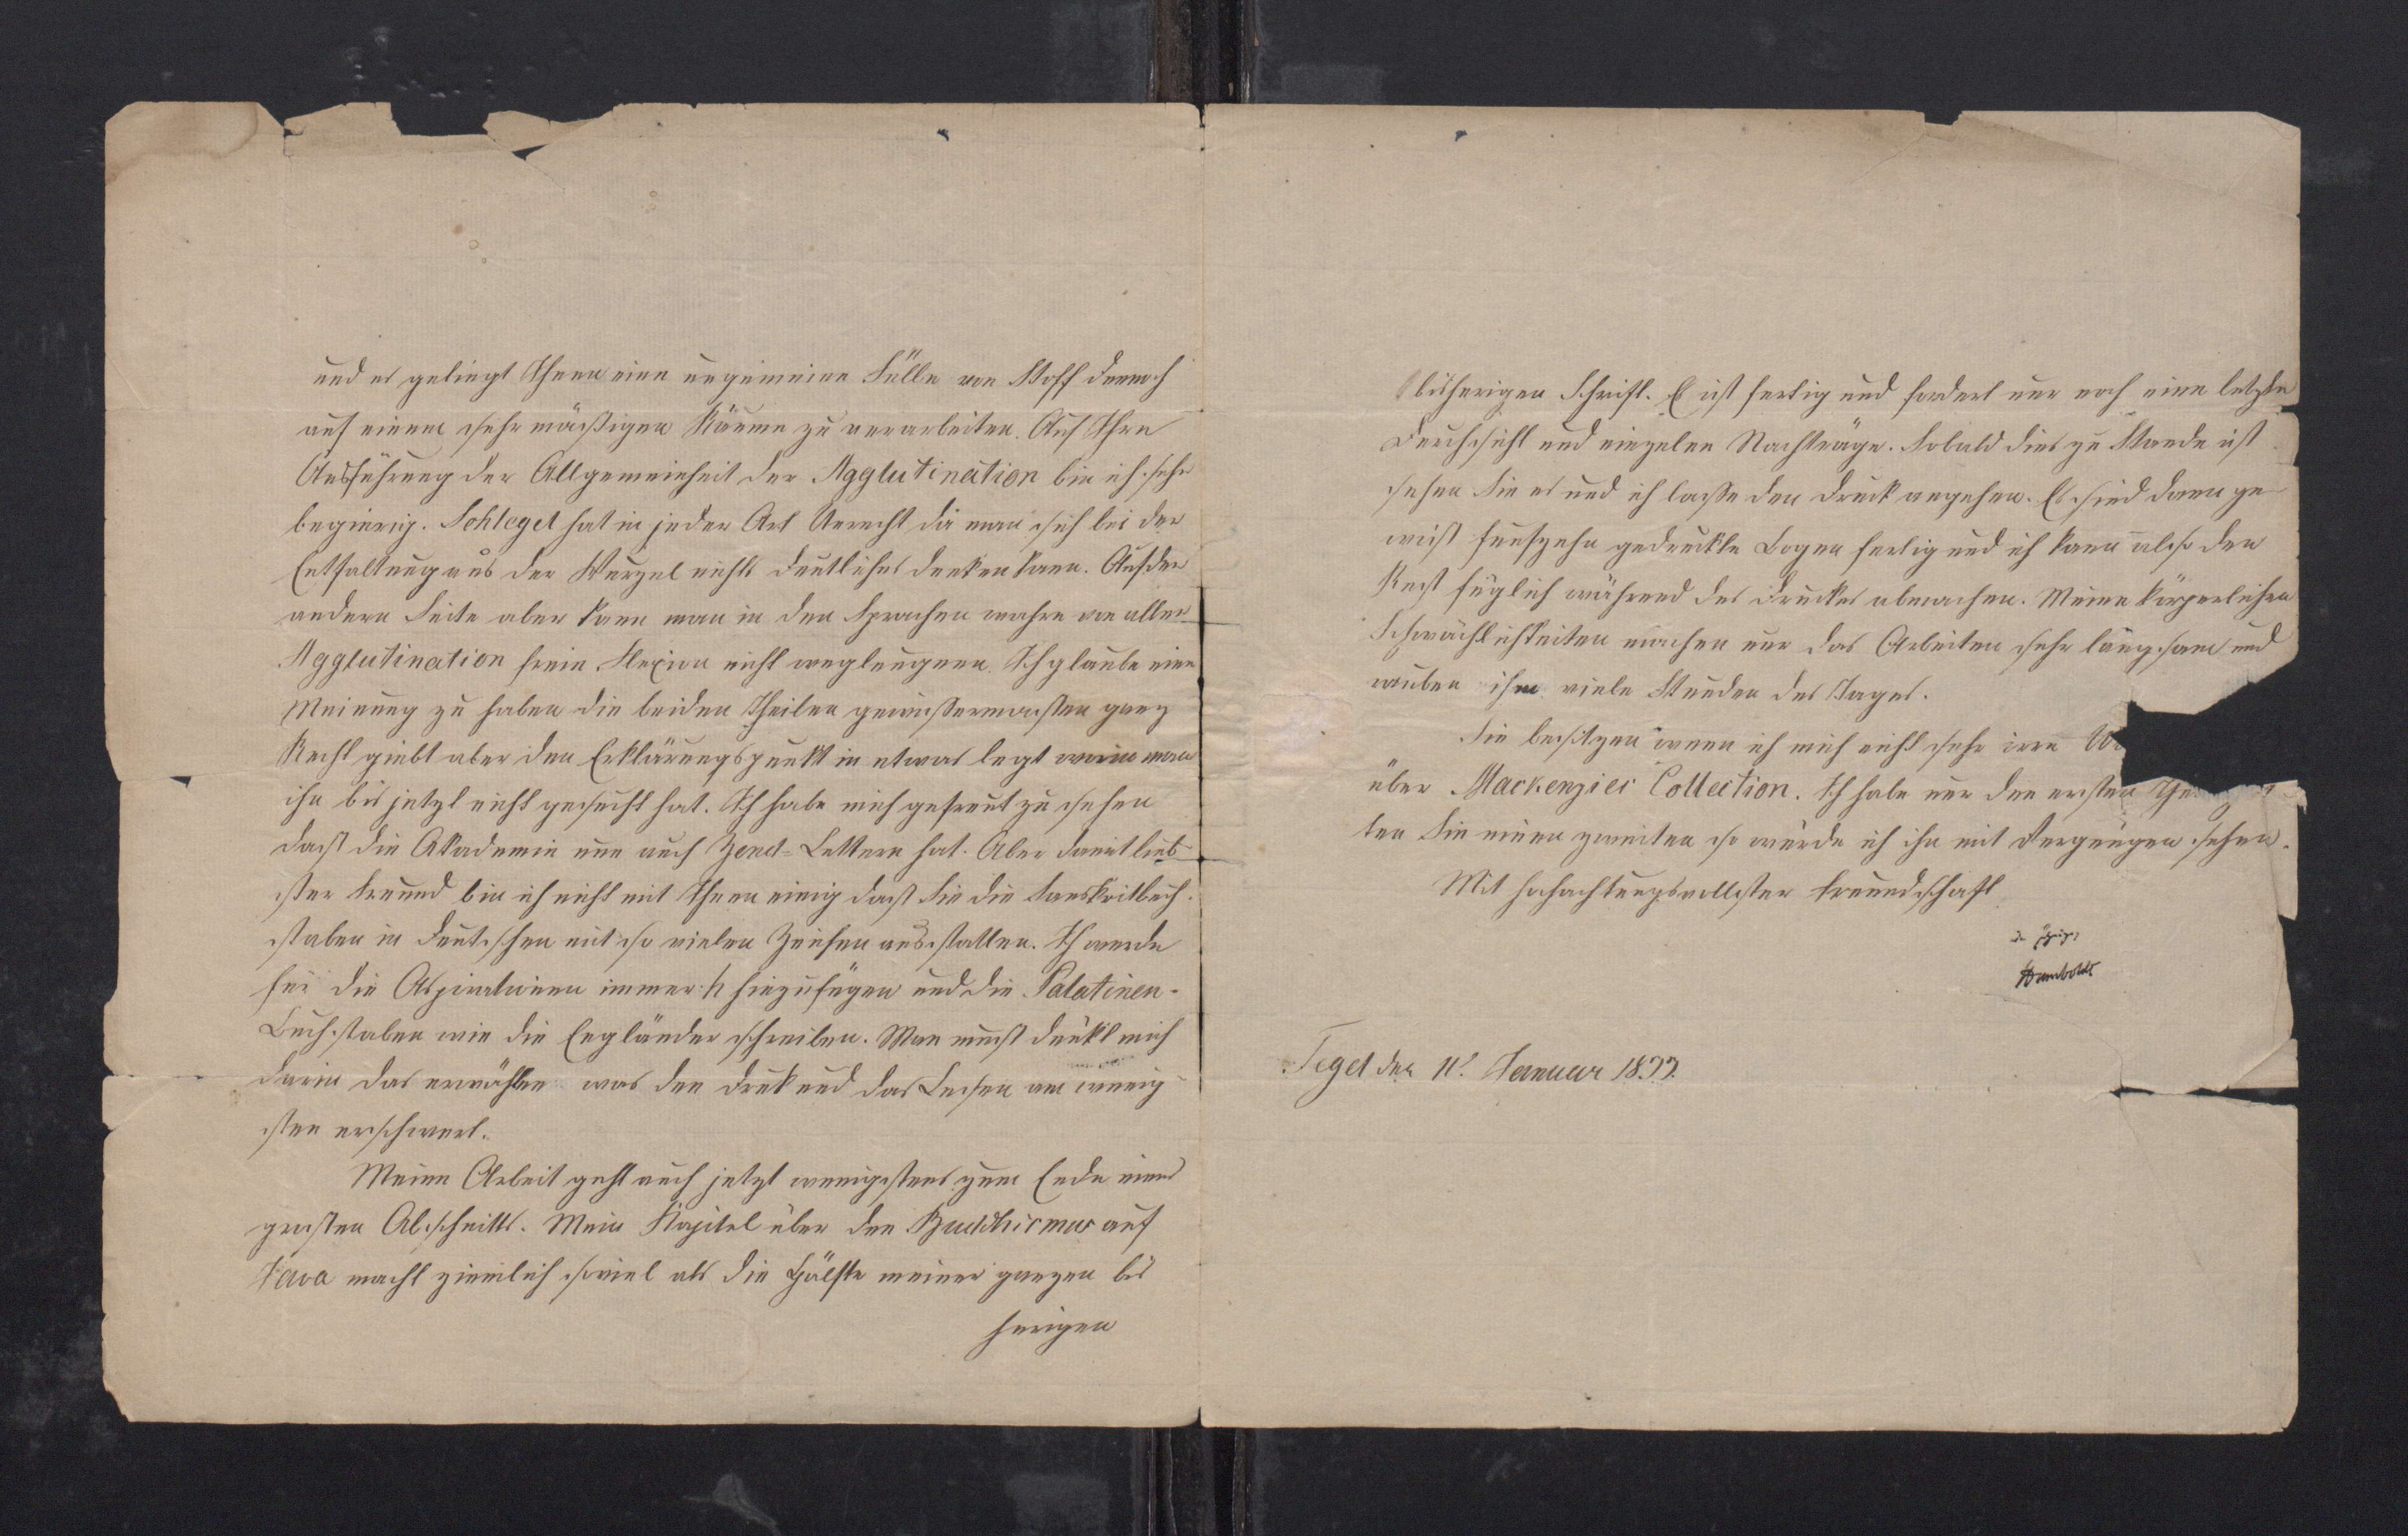 und es gelingt Ihnen eine ungemeine Fülle von Stoff dennoch
auf einem sehr mäßigen Raume zu verarbeiten. Auf Ihre
Ausführung der Allgemeinheit der Agglutination bin ich sehr
begierig. Schlegel hat in jeder Art Unrecht da man sich bei der
Entfaltung aus der Wurzel nichts deutliches denken kann. Auf der
andern Seite aber kann man in den Sprachen wahre von aller
Agglutination freie Flexion nicht wegleugnen. Ich glaube eine
Meinung zu haben die beiden Theilen gewissermassen ganz
Recht giebt aber den Erklärungspunkt in etwas legt worin man
ihn bis jetzt nicht gesucht hat. Ich habe mich gefreut zu sehen
dass die Akademie nun auch Zend-Lettern hat. Aber damit lieb-
ster Freund bin ich nicht mit Ihnen einig dass Sie die Sanskritbuch-
staben in Deutschen mit so vielen Zeichen ausstatten. Ich werde
für die Aspirationen immer h hinzufügen und die Palatinen-
Buchstaben wie die Engländer schreiben. Man muss dünkt mich
darin das erwählen was den Druk und das Lesen am wenig
sten erschwert.
Meine Arbeit geht auch jetzt wenigstens zum Ende eines
grossen Abschnitts. Mein Kapitel über den Buddhismus auf
Java macht ziemlich soviel als die Hälfte meiner ganzen bis
herigen
bisherigen Schrift. Es ist fertig und fordert nur noch eine letzte
Durchsicht und einzelne Nachträge. Sobald dies zu Stande ist
sehen Sie es und ich lasse den Druck angehen. Es sind dann ge
wiss funfzehn gedruckte Bogen fertig und ich kann also den
Rest füglich während des Druckes abmachen. Meine körperlichen
Schwächlichkeiten machen nur das Arbeiten sehr langsam und
rauben ihm viele Stunden des Tages.
Sie besitzen wenn ich mich nicht sehr irre
über Mackenzies Collection. Ich habe nur den ersten
ten Sie einen zweiten so würde ich ihn mit Vergnügen sehen.
Mit hochachtungsvollster Freundschaft
der Ihrige
Humboldt
Tegel den 11. Januar 1833.